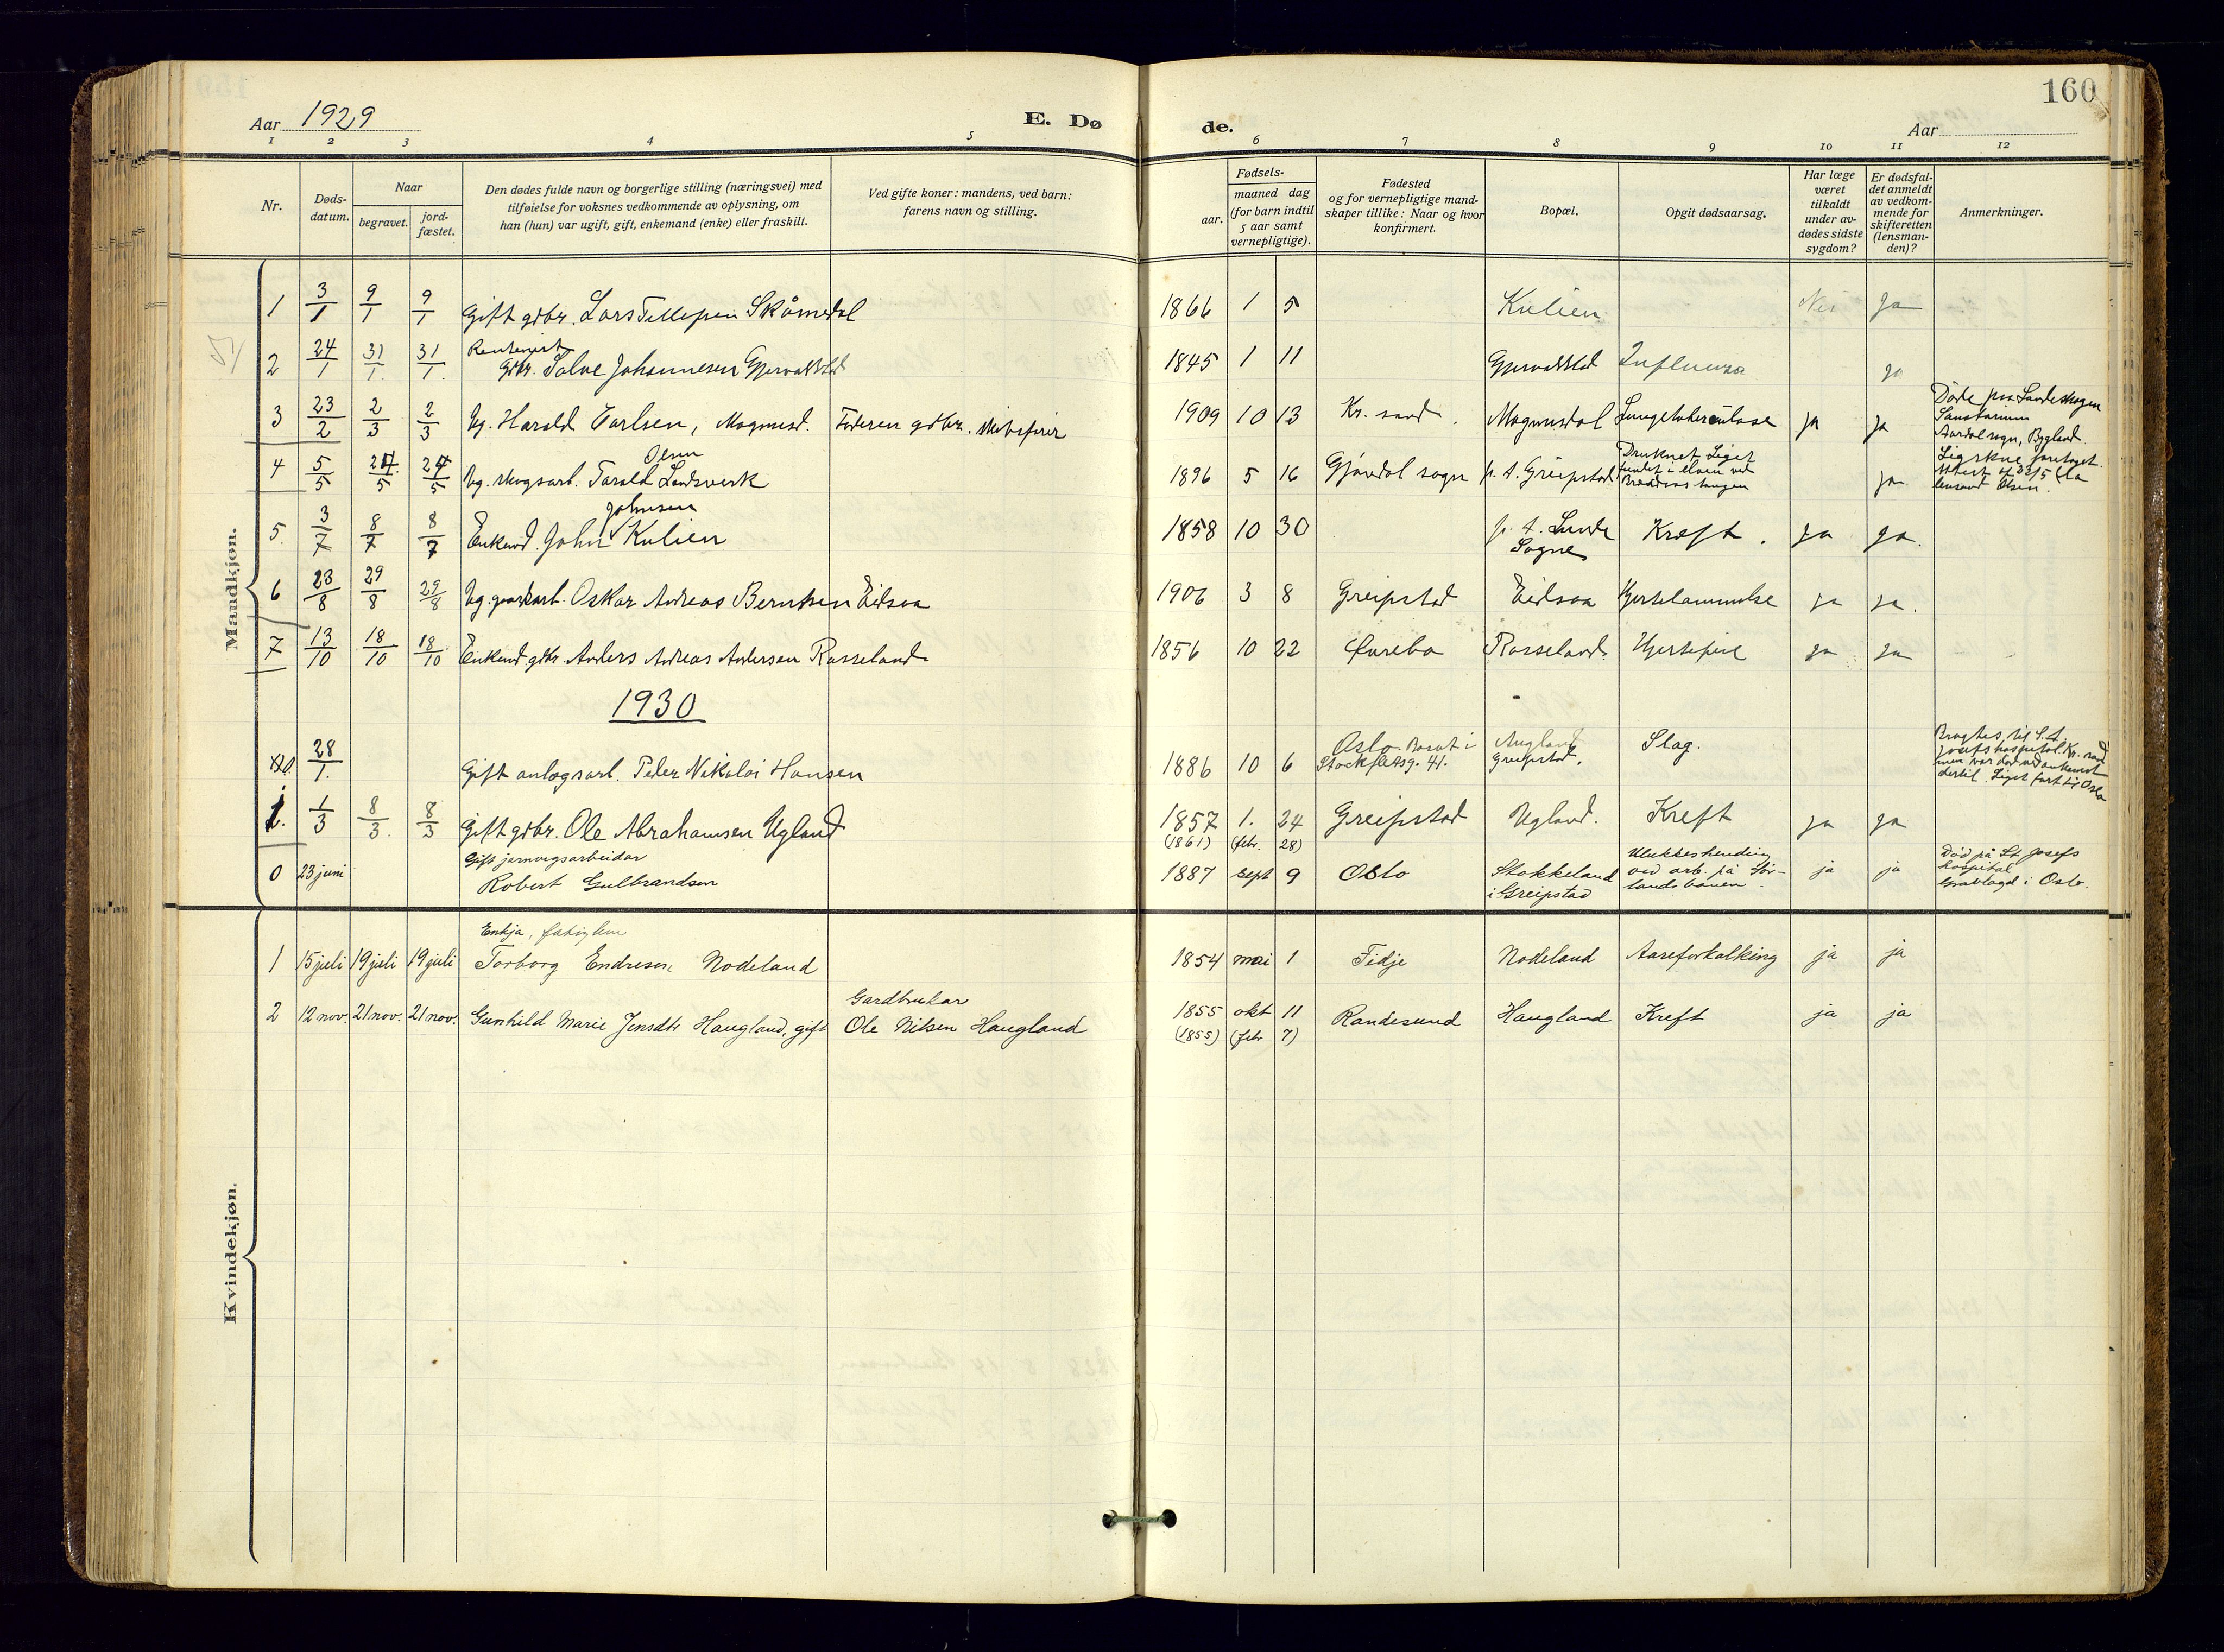 160
Aar 1929
E. Dø
de.
Aar
1 2 3 4 5 6 7 8 9 10 11 12
Nr.
Døds-
datum.
Naar
begravet.
jord-
fæstet.
Den dødes fulde navn og borgerlige stilling (næringsvei) med
tilføielse for voksnes vedkommende av oplysning, om
han (hun) var ugift, gift, enkemand (enke) eller fraskilt.
Ved gifte koner: mandens, ved barn:
farens navn og stilling.
Fødsels-
aar.
maaned dag
(for barn indtil
5 aar samt
vernepligtige).
Fødested
og for vernepligtige mand-
skaper tillike: Naar og hvor
konfirmert.
Bopæl.
Opgit dødsaarsag.
Har læge
været
tilkaldt
under av-
dødes sidste
sygdom?
Er dødsfal-
det anmeldt
av vedkom-
mende for
skifteretten
(lensman-
den)?
Anmerkninger.
Mandkjøn.
1 3/1 9/1 9/1 Gift gdbr. Lars Tellefsen Skåmedal 1866 1 5 Kulien Nei Ja
2 24/1 31/1. 31/1. Gdbr. Salve Johannesen Gjervaldstad 1845 1 11 Gjervaldstad Influensa ja
3 23/2 2/3 2/3 Ug. Harald Carlsen, Magnusd. Faderen gdbr. 1909 10 13 Kr. sand. Magnusdal Lungetuberculose ja ja
Døde paa Landeskogen
Sanatorium
Aardal sogn, Bygland.
4 5/5 24/5 24/5 Ug. skogsarb. Tarald Olsen Landsverk 1896 5 16 Gjøvdal sogn p. t. Greipstad
Druknet Liget
fundet i elven ved
ja
Ligskue foretaget.
5. 3/7 8/7 8/7 Enkemd. John Johnsen Kulien 1858 10 30 p. t. Lunde
Sogne
Kreft. ja ja.
6 23/8 29/8 29/8 Ug. gaardarb. Oskar Andreas Berntsen Eidsaa 1906 3 8 Greipstad Eidsaa Hjertelammelse ja ja.
7 13/10 18/10 18/10 Enkemd gdbr. Anders Andreas Andersen Rosseland 1856 10 22 Øvrebø Rosseland. Hjertefeil ja ja
1930
28/1. Gift anlægsarb. Peder Nikolai Hansen 1886 10 6 Oslo. Bosat i
Stockfletsg. 41.
Augland
Greipstad.
Slag.
Bragtes til S.t.
Josefs hospital. Kr. sand
men var død ved ankomst
dertil. Liget ført til Oslo
1. 1/3 8/3. 8/3 Gift gdbr. Ole Abrahamsen Ugland 1857 1. 24 Greipstad Ugland. Kreft ja ja
(1861) (febr. 28)
0 23 juni Gift jarnvegsarbeidar
Robert Gulbrandsen
1887 sept 9 Oslo Stokkeland
i Greipstad
Ulukkeshending
ved arb. på Sør-
landsbanen.
ja ja
Død på St. Josefs
hospital
Gravlagd i Oslo.
Kvindekjøn.
Enkja,
1 15 juli 19 juli 19 juli Torborg Endresen Nodeland 1854 mai 1 Fidje Nodeland Aareforkalking ja ja
Gardbrukar
2 12 nov. 21 nov. 21 nov. Gunhild Marie Jensdtr Haugland, gift Ole Nilsen Haugland 1855 okt 11 Randesund Haugland Kreft ja ja
(1855) (febr 7)